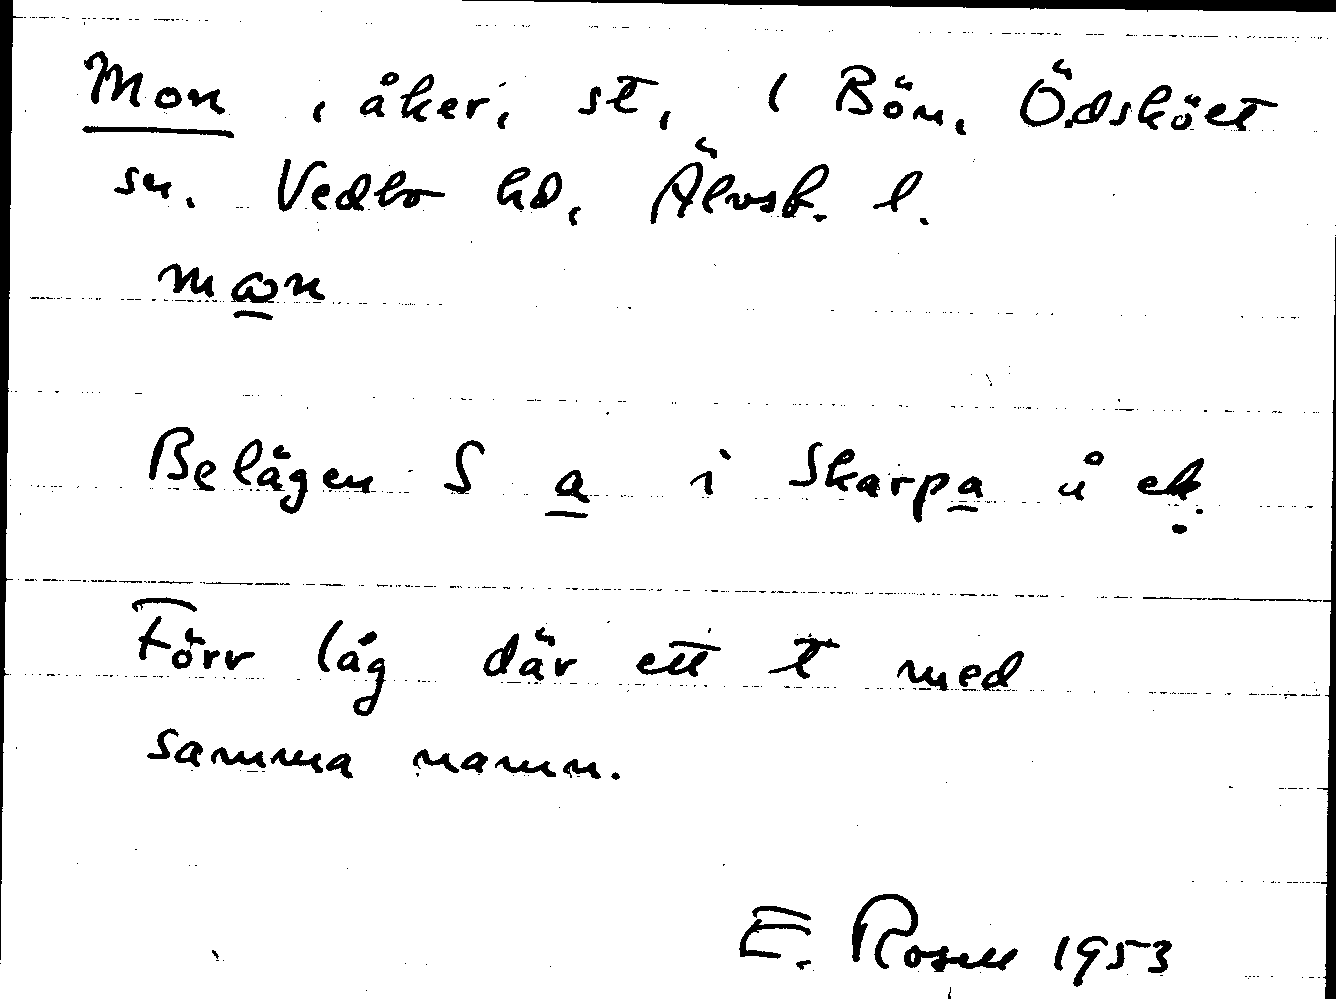 Mon, åker, st, i Bön, Ödskölt
sn. Vedbo hd, Älvsb. l.
mωn
Belägen S a i Skarpa å ek.
Förr låg där ett t med
samma namn.
E. Rosell 1953